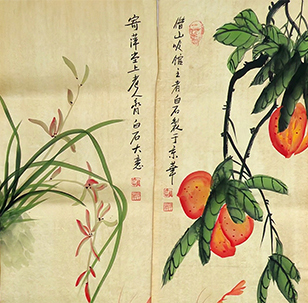 借山吟馆主者白石製于京華
寄萍堂上老人齊白石大意